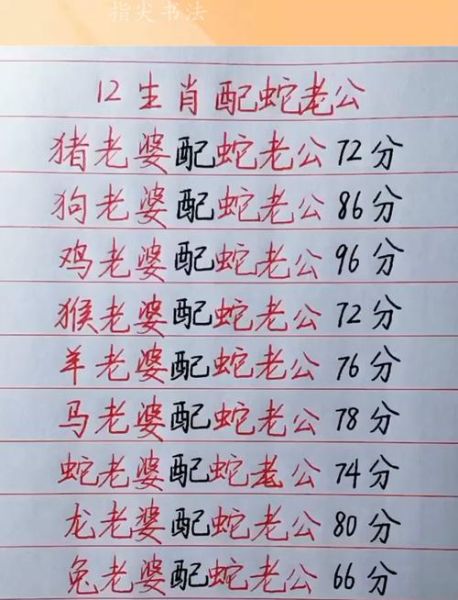 指尖书法
12生肖配蛇老公
猪老婆配蛇老公72分
狗老婆配蛇老公86分
鸡老婆配蛇老公96分
猴老婆配蛇老公72分
羊老婆配蛇老公76分
马老婆配蛇老公78分
蛇老婆配蛇老公74分
龙老婆配蛇老公80分
兔老婆配蛇老公66分